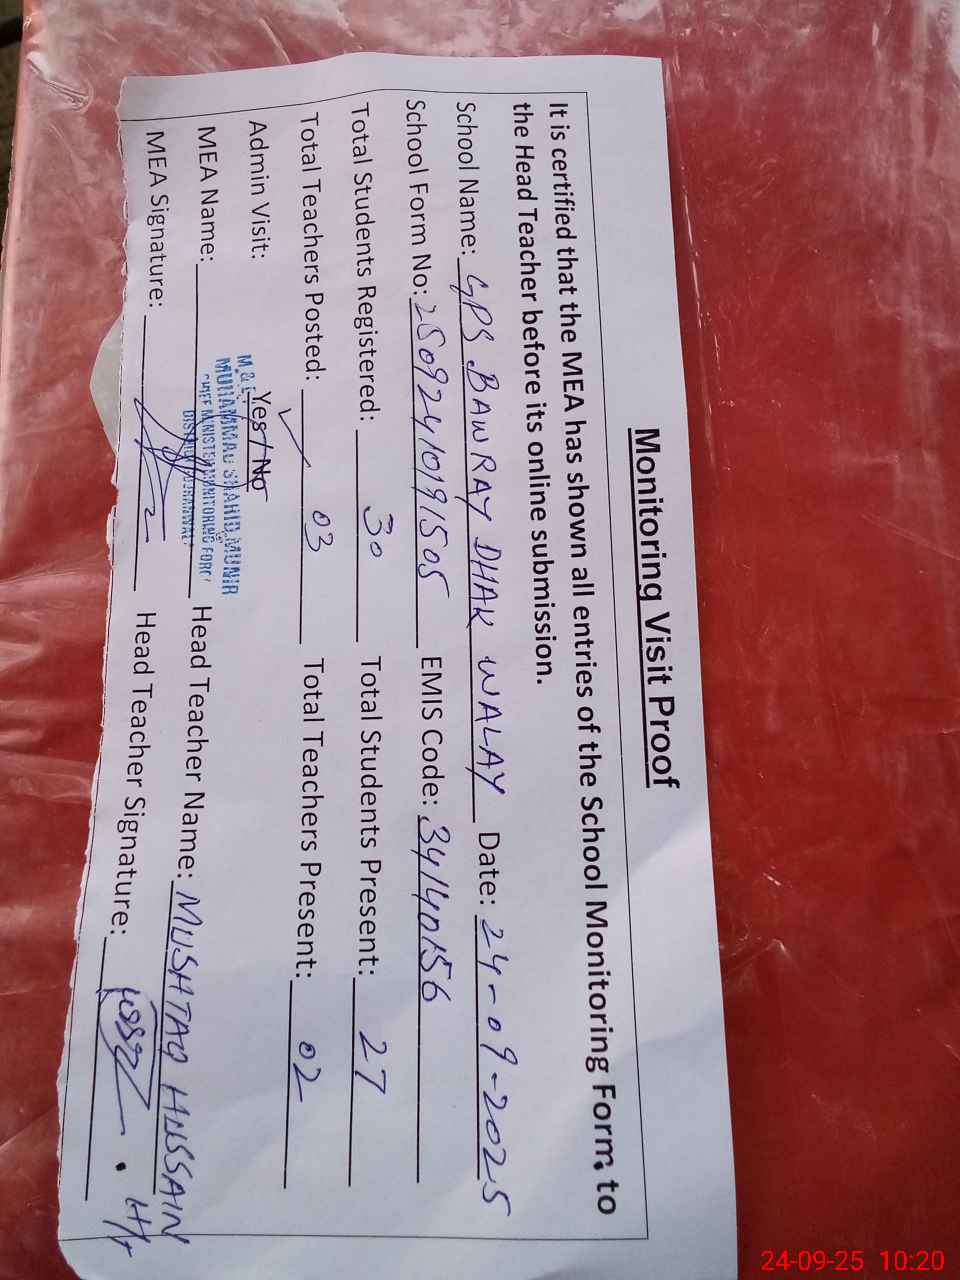 Monitoring Visit Proof
It is certified that the MEA has shown all entries of the School Monitoring Form to
the Head Teacher before its online submission.
School Name: GPS BAWRAY DHAK WALAY Date: 24-09-2025
School Form No: 25092410191505 EMIS Code: 34140156
Total Students Registered: 30 Total Students Present: 27
Total Teachers Posted: 03 Total Teachers Present: 02
Admin Visit: Yes / No
M & E
MUHAMMAD SHAHID MUNIR
CHIEF MINISTER MONITORING FORCE
DISTRICT GUJRANWALA
MEA Name: Head Teacher Name: MUSHTAQ HUSSAIN
MEA Signature: Head Teacher Signature:
24-09-25 10:20